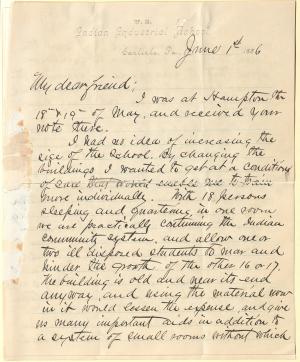 U.S.
Indian Industrial School
Carlisle, Pa., June 1st 1886
My dear friend;
I was at Hampton the
18th & 19th of May, and received your
note there.
I had no idea of increasing the
size of the School. By changing the
buildings, I wanted to get at a condition
of care that would enable me to train
more individually. With 18 persons
sleeping and quartering in one room
we are practically continuing the Indian
community system, and allow one or
two ill disposed students to mar and
hinder the growth of the other 16 or 17.
The building is old and near its end
anyway, and using the material now
in it would lessen the expense, and give
us many important aids in addition to
a system of small rooms without which